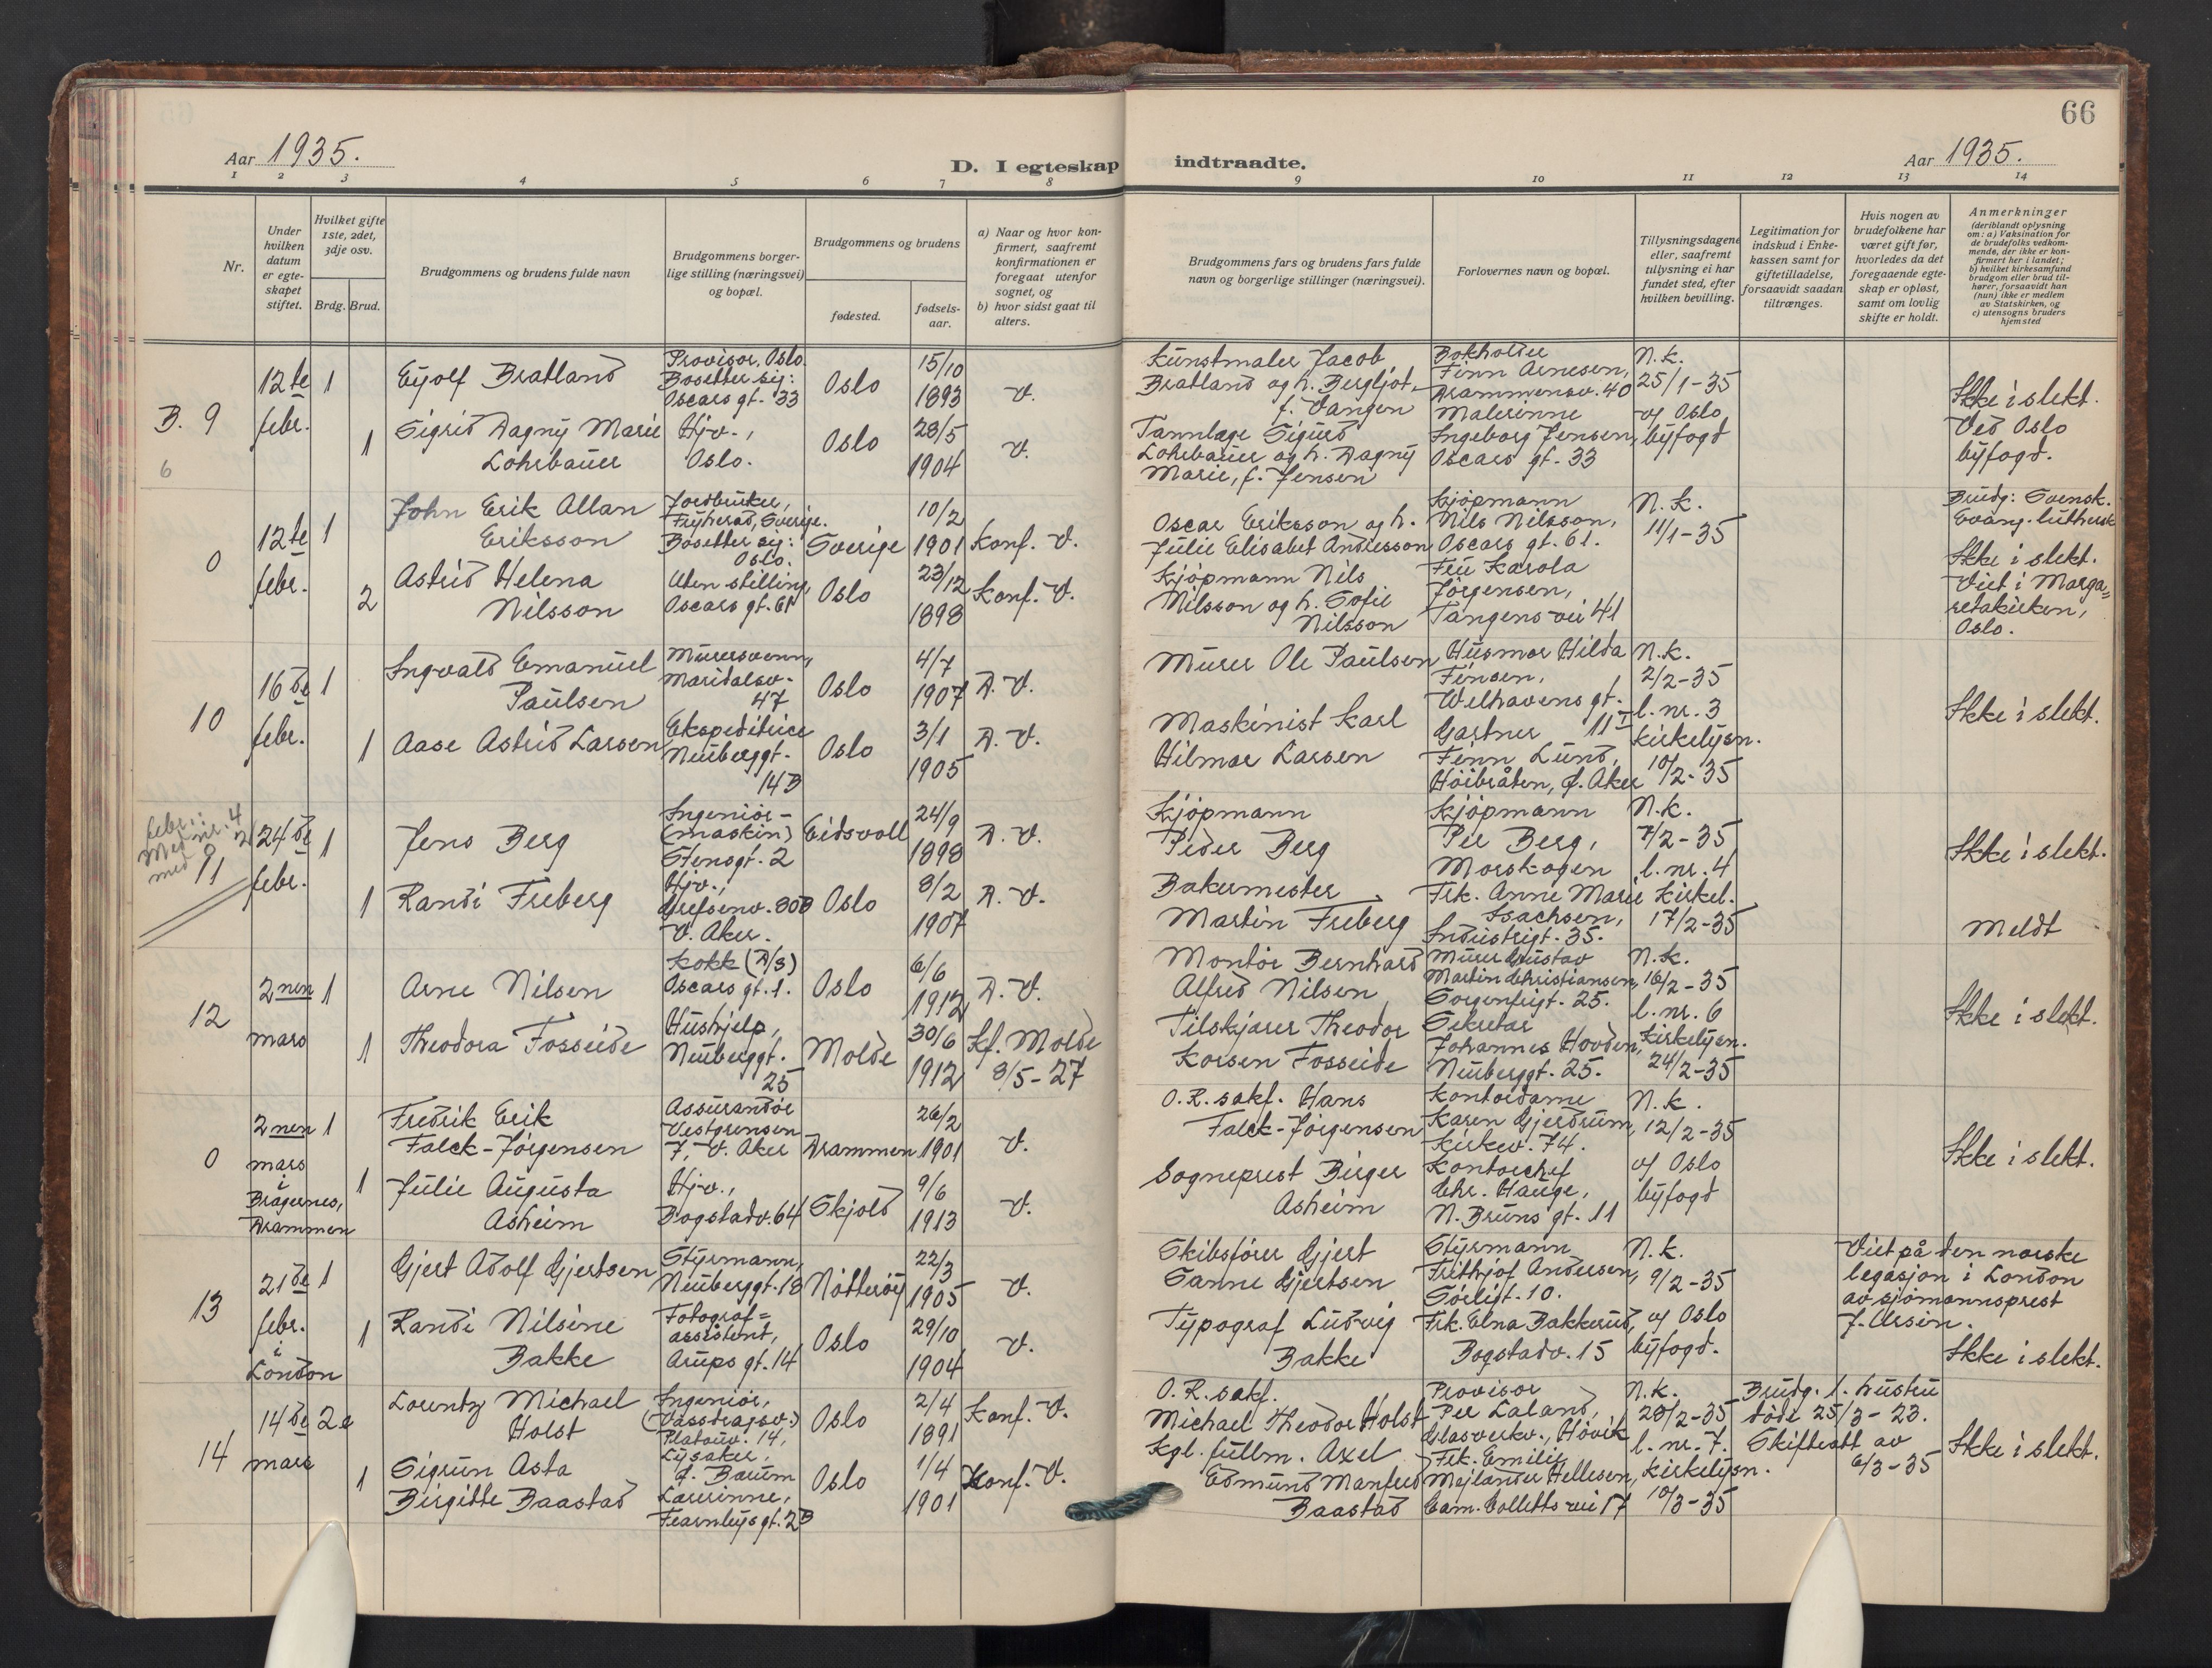 66
Aar 1935.
D. I egteskap indtraadte.
Aar 1935.
1 2 3 4 5 6 7 8 9 10 11 12 13 14
Nr.
Under
hvilken
datum
er egte-
skapet
stiftet.
Hvilket gifte
1ste, 2det,
3dje osv.
Brdg. Brud.
Brudgommens og brudens fulde navn
Brudgommens borger-
lige stilling (næringsvei)
og bopæl.
Brudgommens og brudens
fødested.
fødsels-
aar.
a) Naar og hvor kon-
firmert, saafremt
konfirmationen er
foregaat utenfor
sognet, og
b) hvor sidst gaat til
alters.
Brudgommens fars og brudens fars fulde
navn og borgerlige stillinger (næringsvei).
Forlovernes navn og bopæl.
Tillysningsdagene
eller, saafremt
tillysning ei har
fundet sted, efter
hvilken bevilling.
Legitimation for
indskud i Enke-
kassen samt for
giftetilladelse,
forsaavidt saadan
tiltrænges.
Hvis nogen av
brudefolkene har
været gift før,
hvorledes da det
foregaaende egte-
skap er opløst,
samt om lovlig
skifte er holdt.
Anmerkninger
(deriblandt oplysning
om: a) Vaksination for
de brudefolks vedkom-
mende, der ikke er kon-
firmert her i landet;
b) hvilket kirkesamfund
brudgom eller brud til-
hører, forsaavidt han
(hun) ikke er medlem
av Statskirken, og
c) utensogns bruders
hjemsted
B. 9
6
12te
febr.
1
Eyolf Bratland
Provisor, Oslo.
Bosetter sig:
Oscars gt. 33
Oslo
15/10
1893
V.
Kunstmaler Jacob
Bratland og h. Bergljot,
f. Vangen
Bokholder
Finn Arnesen,
Drammensv. 40
N.k.
25/1-35
1
Sigrid Dagny Marie
Lohrbauer
Hjv.,
Oslo.
Oslo
28/5
1904
V.
Tannlæge Sigurd
Lohrbauer og h. Dagny
Marie, f. Jensen
Malerinne
Ingeborg Jensen,
Oscars gt. 33
v/ Oslo
byfogd
Ikke i slekt.
Ved Oslo
byfogd.
0
12te
febr.
1
John Erik Allan
Eriksson
Jordbruker,
Fryherad, Sverige.
Bosetter sig:
Oslo.
Sverige
10/2
1901
Konf. V.
Oscar Eriksson og h.
Julie Elisabet Andersson
Kjøpmann
Nils Nilsson,
Oscars gt. 61.
N.k.
11/1-35
2
Astrid Helena
Nilsson
Uten stilling,
Oscars gt. 61
Oslo
23/12
1898
Konf. V.
Kjøpmann Nils
Nilsson og h. Sofie
Nilsson
Fru Karola
Jørgensen,
Tangens vei 41
Brudg: Svensk.
Evang. luthersk
Ikke i slekt.
Viet i Marga=
retakirken,
Oslo.
10
16de
febr.
1
Ingvald Emanuel
Paulsen
Murersvenn,
Maridalsv.
47
Oslo
4/7
1907
D. V.
Murer Ole Paulsen
Husmor Hilda
Finsen,
Welhavens gt.
11 I
N.k.
2/2-35
l. nr. 3
kirkelysn.
10/2-35
1
Aase Astrid Larsen
Ekspeditrice
Neuberggt.
14B
Oslo
3/1
1905
D. V.
Maskinist Karl
Hilmar Larsen
Gartner
Finn Lund,
Høibråten, Ø. Aker
Ikke i slekt.
11
24de
febr.
1
Jens Berg
Ingeniør-
(maskin)
Stensgt. 2
Eidsvoll
24/9
1898
D. V.
Kjøpmann
Peder Berg
Kjøpmann
Per Berg,
Morskogen
N.k.
7/2-35
l. nr. 4
Kirkel.
17/2-35
1
Randi Freberg
Hjv.,
Grefsenv. 80B
V. Aker.
Oslo
8/2
1907
D. V.
Bakermester
Martin Freberg
Frk. Anne Marie
Isachsen,
Industrigt. 35.
Ikke i slekt.
Meldt
12
2nen
mars
1
Arne Nilsen
Kokk (D/S)
Oscars gt. 1.
Oslo
6/6
1912
D. V.
Montør Bernhard
Alfred Nilsen
Murer Gustav
Martin Christiansen,
Sorgenfrigt. 25.
N.k.
16/2-35
l. nr. 6
Kirkelysn.
24/2-35
1
Theodora Fosseide
Hushjelp,
Neuberggt.
25
Molde
30/6
1912
Kf. Molde
8/5-27
Tilskjærer Theodor
Korsen Fosseide
Sekretær
Johannes Hovden,
Neuberggt. 25.
Ikke i slekt.
0
2nen
mars
i
Bragernes,
Drammen
1
Fredrik Erik
Falck-Jørgensen
Assurandør
Vestgrensen
7, V. Aker
Drammen
26/2
1901
V.
O.R.sakf. Hans
Falck-Jørgensen
Kontordame
Karen Gjerdrum,
Kirkev. 74.
N.k.
12/2-35
v/ Oslo
byfogd
1
Julie Augusta
Asheim
Hjv.,
Bogstadv. 64
Skjold
9/6
1913
V.
Sogneprest Birger
Asheim
Kontorchef
Chr. Hauge,
N. Bruns gt. 11
Ikke i slekt.
13
21de
febr.
i
London
1
Gjert Adolf Gjertsen
Styrmann,
Neuberggt. 18
Nøtterøy
22/3
1905
V.
Skibsfører Gjert
Sanne Gjertsen
Styrmann
Frithjof Andersen,
Sørligt. 10.
N.k.
9/2-35
v/ Oslo
byfogd.
1
Randi Nilsine
Bakke
Fotograf=
assistent,
Arups gt. 14
Oslo
29/10
1904
V.
Typograf Ludvig
Bakke
Frk. Elna Bakkerud,
Bogstadv. 15
Viet på den norske
legasjon i London
av sjømannsprest
Ikke i slekt.
14
14de
mars
2e
Lorentz Michael
Holst
Ingeniør,
(Vassdragsv.)
Platouv. 14,
Lysaker,
Ø. Bærum
Oslo
2/4
1891
Konf. V.
O.R.sakf.
Michael Theodor Holst
Provisor
Per Laland,
Glasverkv., Høvik
N.k.
28/2-35
l. nr. 7.
Kirkelysn.
10/3-35
Brudg. 1. hustru
døde 25/3-23.
Skifteatt av
6/3-35
1
Sigrun Asta
Birgitte Baastad
Lærerinne,
Fearnleys gt. 2B
Oslo
1/4
1901
Konf. V.
Kgl. fullm. Axel
Edmund Manfred
Baastad
Frk. Emilie
Mejlænder Hellesen,
Cam. Colletts vei 17
Ikke i slekt.